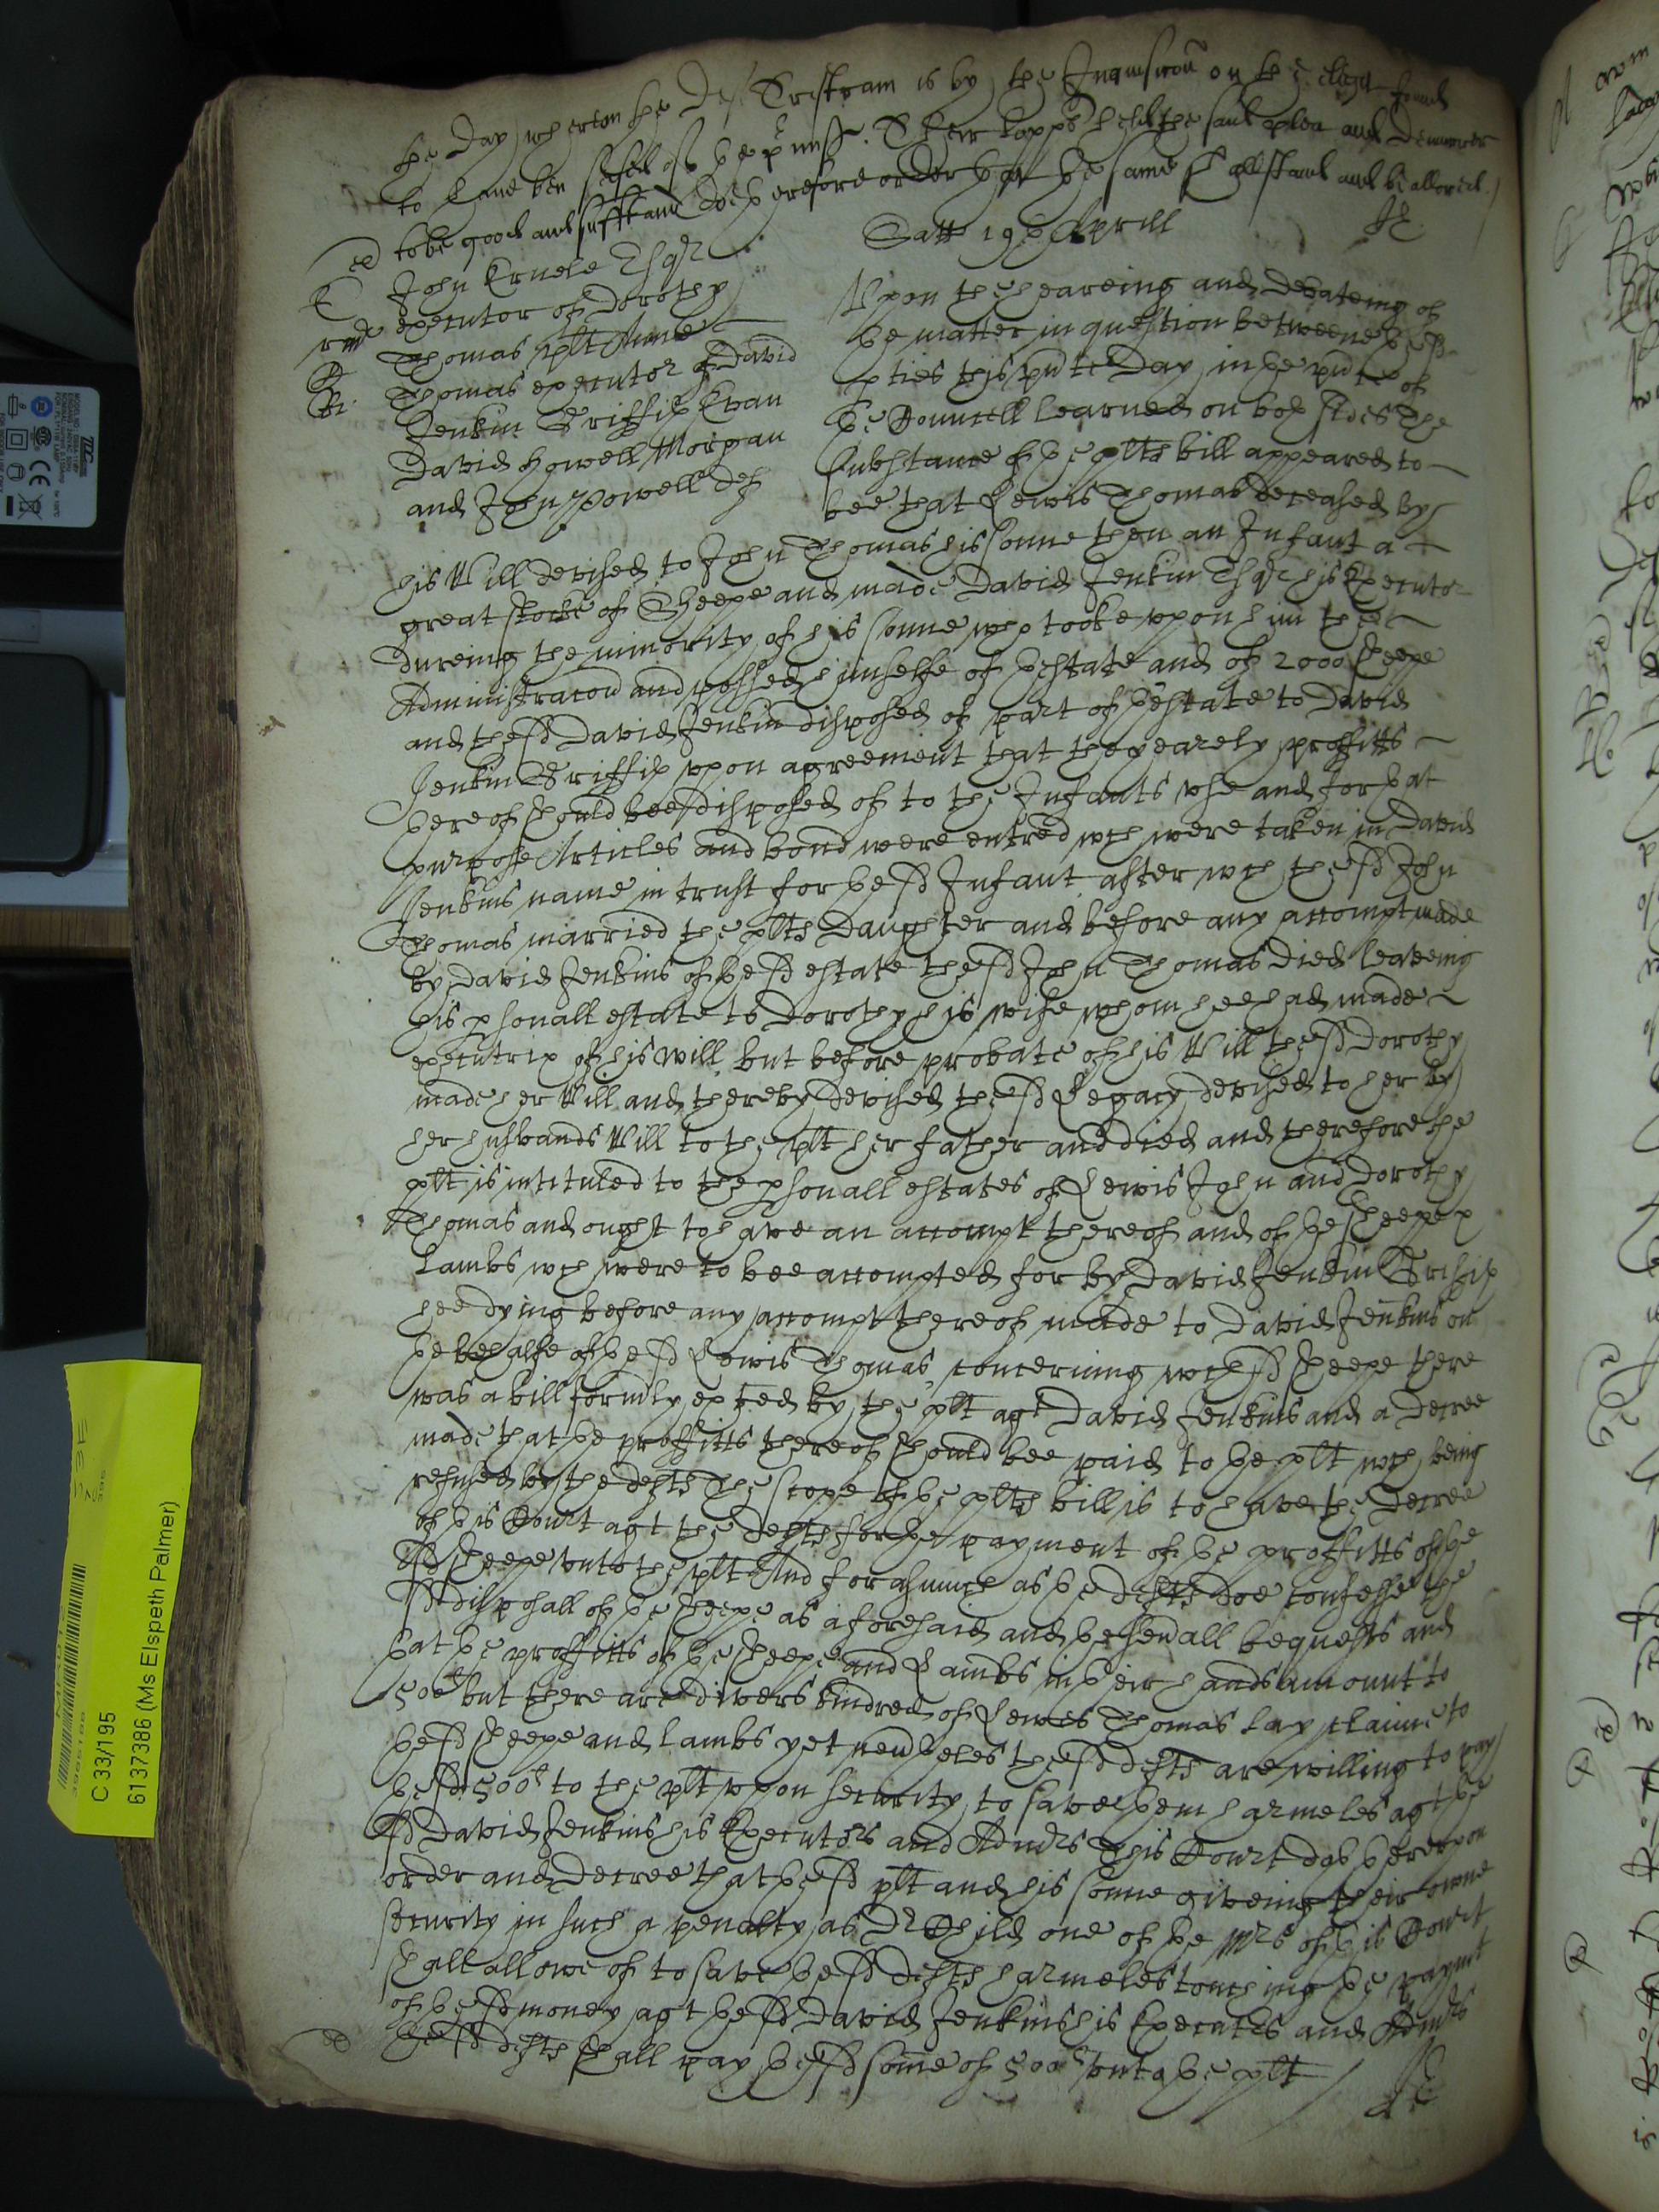 the day wherton the Deft Tristram is by the Inquisicon on the elegit found
to have ben seised of the pmisses. Their Lopps held the said plea and Demurrer
to be good and suffitient doth therefore order that the same shall stand and be allowed.
Satt 19th Aprill
John Ernele Esqr
executor of Dorothy
Thomas plt Anne
Thomas executor of David
Jenkin Griffith Evan
David Howell Morgan
and John Powell defts
Upon the heareing and debateing of
the matter in question betweene the sd
pties this pnte Day in the pnce of
the Councell learned on both sides The
substance of the plts bill appeared to
bee that Lewis Thomas deceased by
his Will devised to John Thomas his sonne then an Infant a
great stocke of Sheepe and made David Jenkin Esqr his Executor
dureing the minority of his sonne who tooke upon him the
Administracon and possed himselfe of thestate and of 2000 sheepe
and the sd David Jenkin disposed of part of thestate to David
Jenkin Griffith upon agreement that the yearely proffitts
thereof should bee disposed of to the Infants use and for that
purpose Articles and bond were entred wch were taken in David
Jenkins name in trust for the sd Infant after wch the sd John
Thomas married the plts Daughter and before any accompt made
by David Jenkins of the sd estate the sd John Thomas died leaveing
his psonall estate to Dorothy his wife whom hee had made
executrix of his will but before probate of his Will the sd Dorothy
made her Will and thereby devised the sd Legacy devised to her by
her husbands Will to the plt her father and died and therefore the
plt is intituled to the psonall estates of Lewis John and Dorothy
Thomas and ought to have an accompt thereof and of the sheepe &
Lambs wch were to bee accompted for by David Jenkin Griffith
hee dying before any accompt thereof made to David Jenkins on
the behalfe of the sd Lewis Thomas, concerning wch sd sheepe there
was a bill formly exhted by the plt agt David Jenkins and a decree
made that the proffitts thereof should bee paid to the plt wch being
refused by the defts The scope of the plts bill is to have the decree
of this Court agt the defts for the payment of the proffitts of the
sd sheepe unto the plt And forasmuch as the defts doe confesse the
sd disposall of the sheepe as aforesaid and the sevall bequests and
that the proffitts of the sheepe and Lambs in their hands amount to
500l but there are divers kindred of Lewes Thomas lay claime to
the sd sheepe and lambs yet nevtheles the sd defts are willing to pay
the sd 500l to the plt upon security to save them harmeles agt the
sd David Jenkins his Executors and Admrs This Court doth thereupon
order and decree that the sd plt and his sonne giveing their owne
security in such a penalty as Dr Child one of the Mrs of this Court
shall allowe of to save the sd defts harmeles touching the paymt
of the sd money agt the sd David Jenkins his Executrs and Admrs
the sd defts shall pay the sd some of 500l unto the plt
C 33/195
6137386 (Ms Elspeth Palmer)